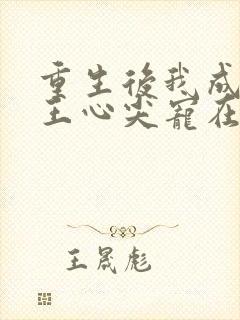 重生後我成
王心尖寵在
王晟彪